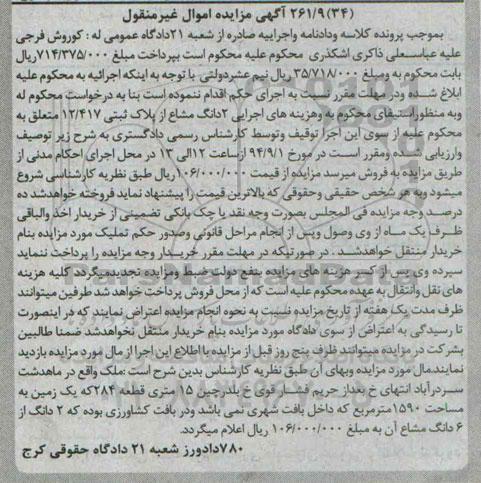 (۳۴) ۲۶۱/۹ آگهی مزایده اموال غیرمنقول
بموجب پرونده کلاسه ودادنامه واجراییه صادره از شعبه ۲۱دادگاه عمومی له : کوروش فرجی
علیه عباسعلی ذاکری اشکذری محکوم علیه محکوم است بپرداخت مبلغ ۷۱۴/۳۷۵/۰۰۰ریال
بابت محکوم به ومبلغ ۳۵/۷۱۸/۰۰۰ ریال نیم عشردولتی با توجه به اینکه اجرائیه به محکوم علیه
ابلاغ شده ودر مهلت مقرر نسبت به اجرای حکم اقدام ننموده است بنا به درخواست محکوم له
وبه منظوراستیفای محکوم به وهزینه های اجرایی ۲دانگ مشاع از پلاک ثبتی ۱۲/۴۱۷ متعلق به
محکوم علیه از سوی این اجرا توقیف وتوسط کارشناس رسمی دادگستری به شرح زیر توصیف
وارزیابی شده ومقرر است در مورخ ۹۴/۹/۱ ازساعت ۱۲الی ۱۳ در محل اجرای احکام مدنی از
طریق مزایده به فروش میرسد مزایده از قیمت ۱۰۶/۰۰۰/۰۰۰ ریال طبق نظریه کارشناسی شروع
میشود وبه هر شخص حقیقی وحقوقی که بالاترین قیمت را پیشنهاد نماید فروخته خواهدشد ده
درصد وجه مزایده فی المجلس بصورت وجه نقد یا چک بانکی تضمینی از خریدار اخذ والباقی
ظرف یک ماه از وی وصول وپس از انجام مراحل قانونی وصدور حکم تملیک مورد مزایده بنام
خریدار منتقل خواهدشد . در صورتیکه در مهلت مقرر خریدار وجه مزایده را پرداخت ننماید
سپرده وی پس از کسر هزینه های مزایده بنفع دولت ضبط ومزایده تجدیدمیگردد کلیه هزینه
های نقل وانتقال به عهده محکوم علیه است که از محل فروش پرداخت خواهد شد طرفین میتوانند
ظرف مدت یک هفته از تاریخ مزایده نسبت به نحوه انجام مزایده اعتراض نمایند که در اینصورت
تا رسیدگی به اعتراض از سوی دادگاه مورد مزایده بنام خریدار منتقل نخواهدشد ضمنا طالبین
بشرکت در مزایده میتوانند ظرف پنج روز قبل از مزایده با اطلاع این اجرا از مال مورد مزایده بازدید
نمایند.مال مورد مزایده وبهای آن طبق نظریه کارشناس بدین شرح است :ملک واقع در ماهدشت
سردرآباد انتهای خ بعداز حریم فشار قوی خ بلدرچین ۱۵ متری قطعه ۲۸۴که یک زمین به
مساحت ۱۵۹۰مترمربع که داخل بافت شهری نمی باشد ودر بافت کشاورزی بوده که ۲ دانگ از
۶ دانگ مشاع آن به مبلغ ۱۰۶/۰۰۰/۰۰۰ ریال اعلام میگردد.
۷۸۰دادورز شعبه ۲۱ دادگاه حقوقی کرج